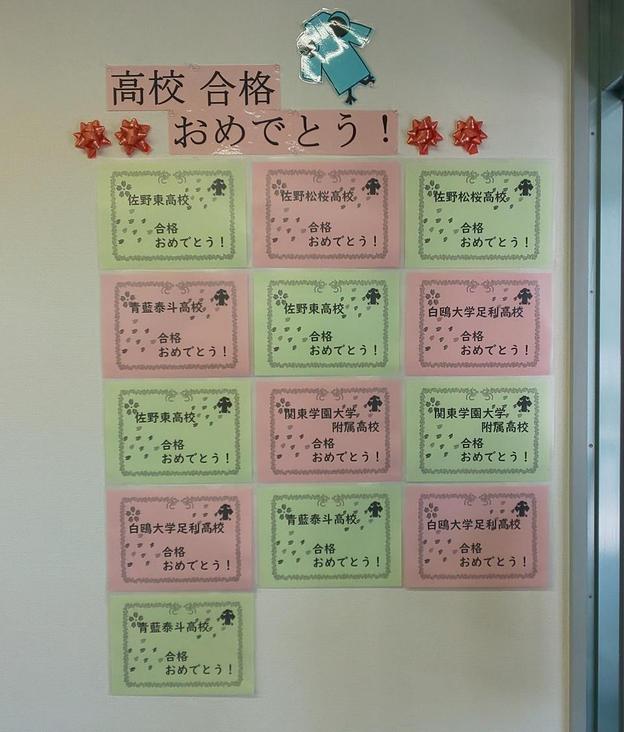 高校 合格
おめでとう！
佐野東高校
合格
おめでとう！
佐野松桜高校
合格
おめでとう！
佐野松桜高校
合格
おめでとう！
青藍泰斗高校
合格
おめでとう！
佐野東高校
合格
おめでとう！
白鴎大学足利高校
合格
おめでとう！
佐野東高校
合格
おめでとう！
関東学園大学
附属高校
合格
おめでとう！
関東学園大学
附属高校
合格
おめでとう！
白鴎大学足利高校
合格
おめでとう！
青藍泰斗高校
合格
おめでとう！
白鴎大学足利高校
合格
おめでとう！
青藍泰斗高校
合格
おめでとう！